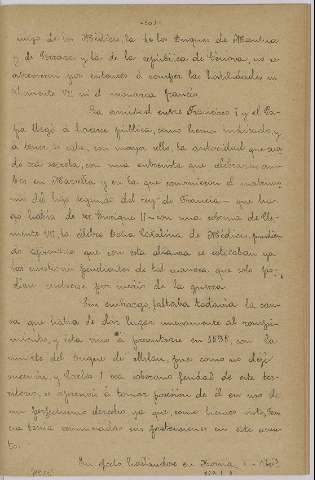 migo de los Médicis, la de los Duques de Mantua
y de Ferrara y la de la república de Venecia, no se
atrevieron por entonces á romper las hostilidades ni
Clemente VII ni el monarca francés.
La amistad entre Francisco I y el Pa-
pa llegó á hacerse pública, como hemos indicado, y
á tener si cabe, con mayor ello, la autoridad que
de ser secreta, con una entrevista que celebraron am-
bos en Marsella y en la que convinieron el matrimo-
nio del hijo segundo del rey de Francia — que lue-
go había de ser Enrique II — con una sobrina de Cle-
mente VII, la célebre Doña Catalina de Médicis, pudién-
dose afirmar que con esta alianza se colocaban
las cuestiones pendientes de tal manera que sólo po-
dían resolverse por medio de la guerra.
Sin embargo, faltaba todavía la cau-
sa que había de dar lugar nuevamente al rompi-
miento, y ésta vino á presentarse en 1535, con la
muerte del Duque de Milán, pues como no dejó
sucesión, y Carlos I era soberano feudal de este ter-
ritorio, se apresuró á tomar posesión de él en uso de
un perfectísimo derecho ya que como hemos visto, Fran-
cia tenía renunciadas sus pretensiones en este asun-
to.
En efecto hallándose en Roma